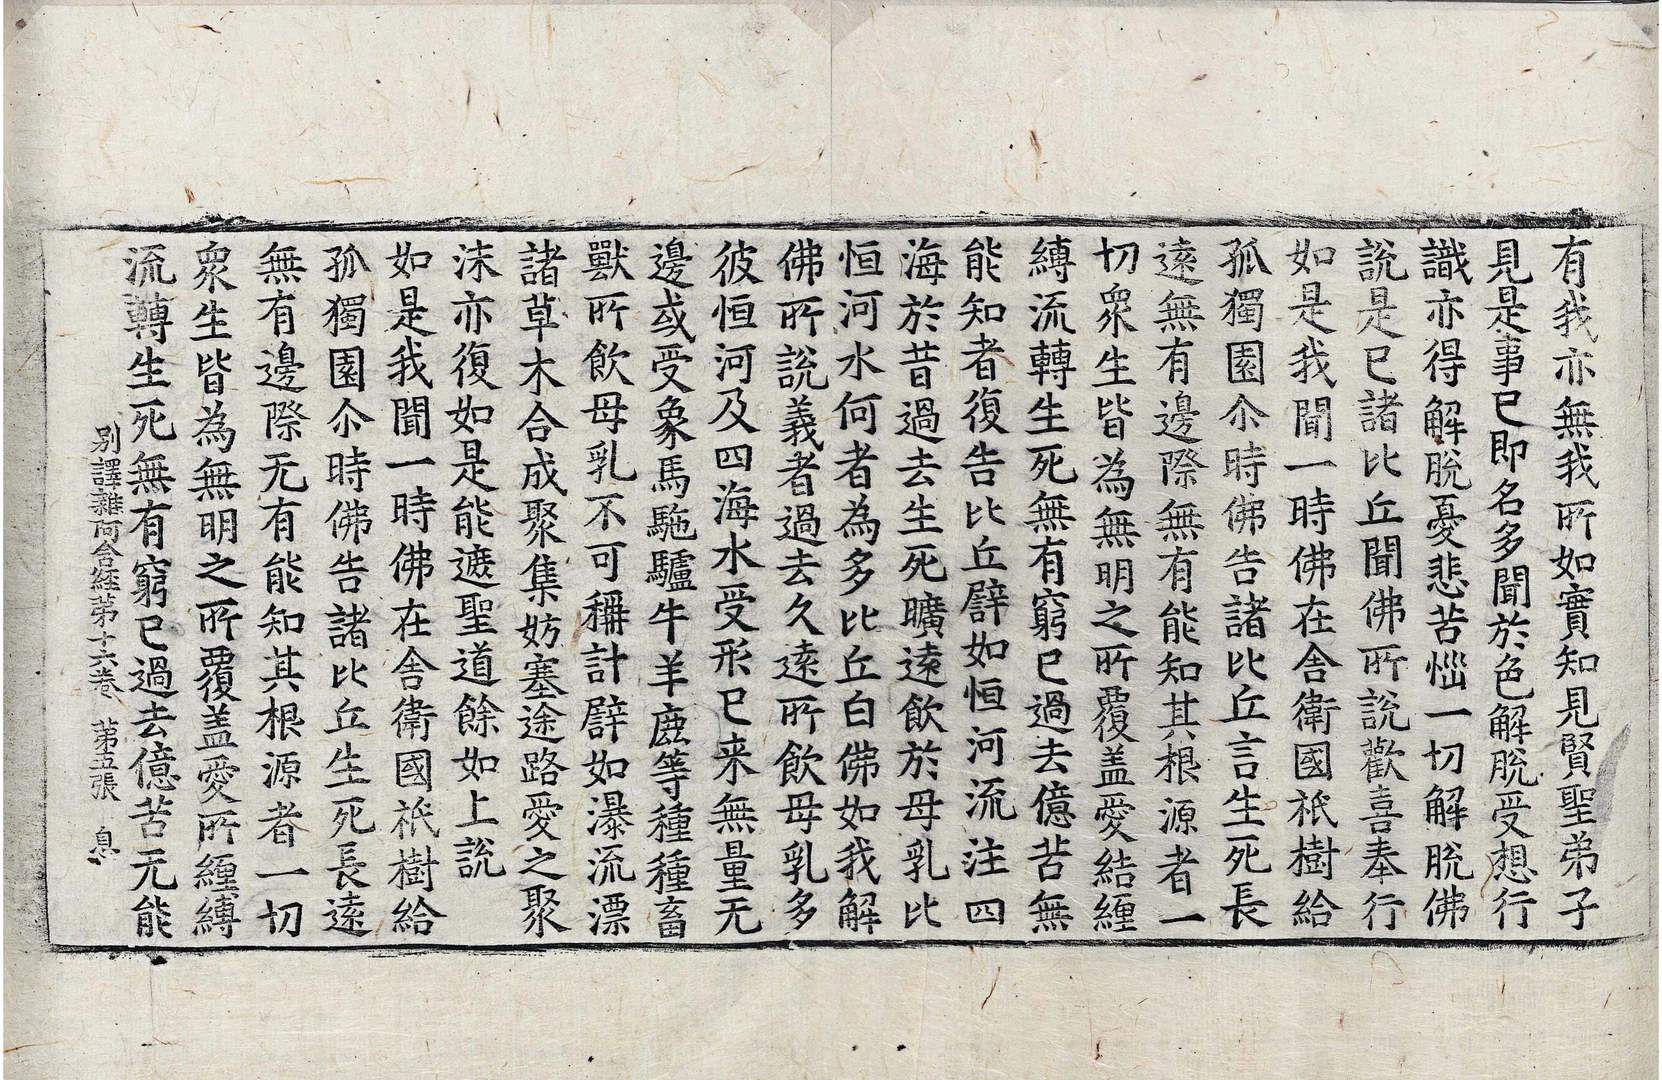 有我亦無我所如實知見賢聖弟子
見是事已即名多聞於色解脫受想行
識亦得解脫憂悲苦惱一切解脫佛
說是已諸比丘聞佛所說歡喜奉行
如是我聞一時佛在舍衛國祇樹給
孤獨園尒時佛告諸比丘言生死長
遠無有邊際無有能知其根源者一
切衆生皆為無明之所覆盖愛結纏
縛流轉生死無有窮已過去億苦無
能知者復告比丘譬如恒河流注四
海於昔過去生死曠遠飲於母乳比
恒河水何者為多比丘白佛如我解
佛所說義者過去久遠所飲母乳多
彼恒河及四海水受形已来無量无
邊或受象馬駞驢牛羊鹿等種種畜
獸所飲母乳不可稱計譬如瀑流漂
諸草木合成聚集妨塞途路愛之聚
沫亦復如是能遮聖道餘如上說
如是我聞一時佛在舍衛國祇樹給
孤獨園尒時佛告諸比丘生死長遠
無有邊際无有能知其根源者一切
衆生皆為無明之所覆盖愛所纏縛
流轉生死無有窮已過去億苦无能
別譯雜阿含経苐十六卷 苐五張 息